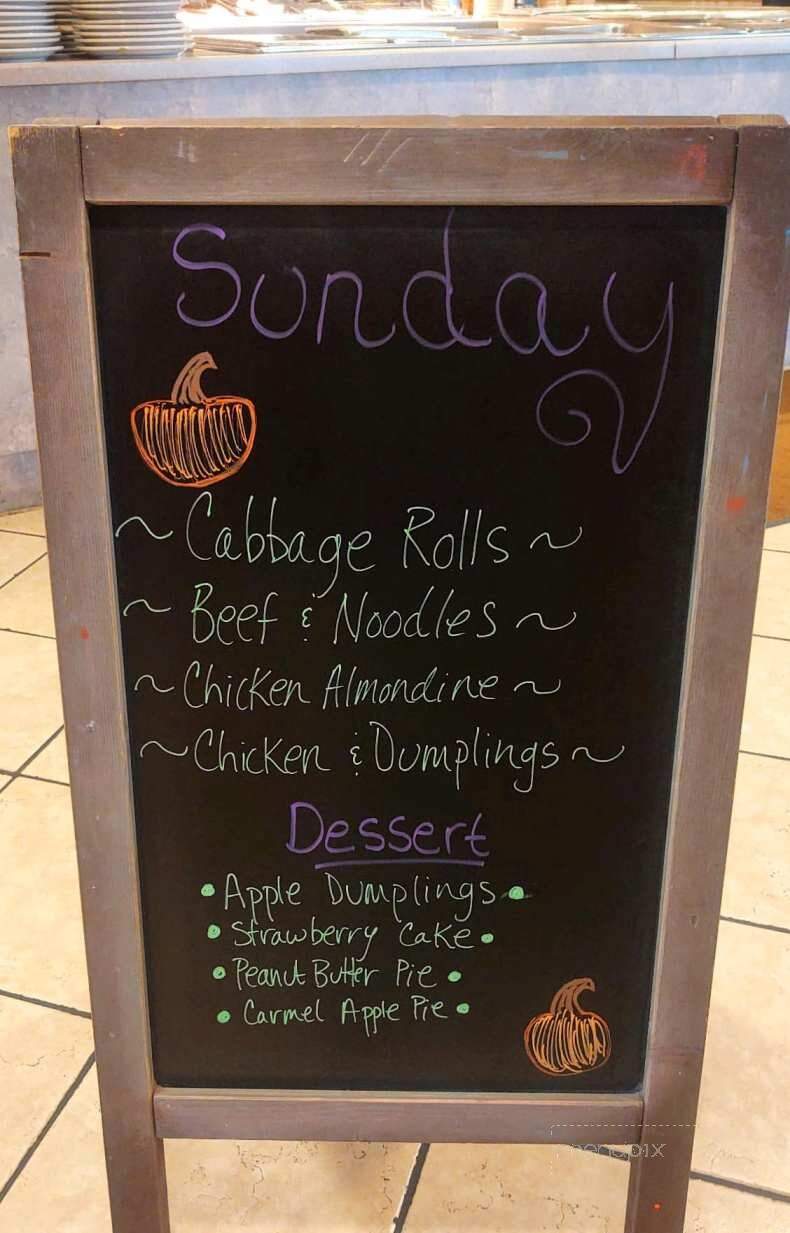 Sunday
~ Cabbage Rolls ~
~ Beef & Noodles ~
~ Chicken Almondine ~
~ Chicken & Dumplings ~
Dessert
• Apple Dumplings •
• Strawberry Cake •
• Peanut Butter Pie •
• Carmel Apple Pie •
menupix